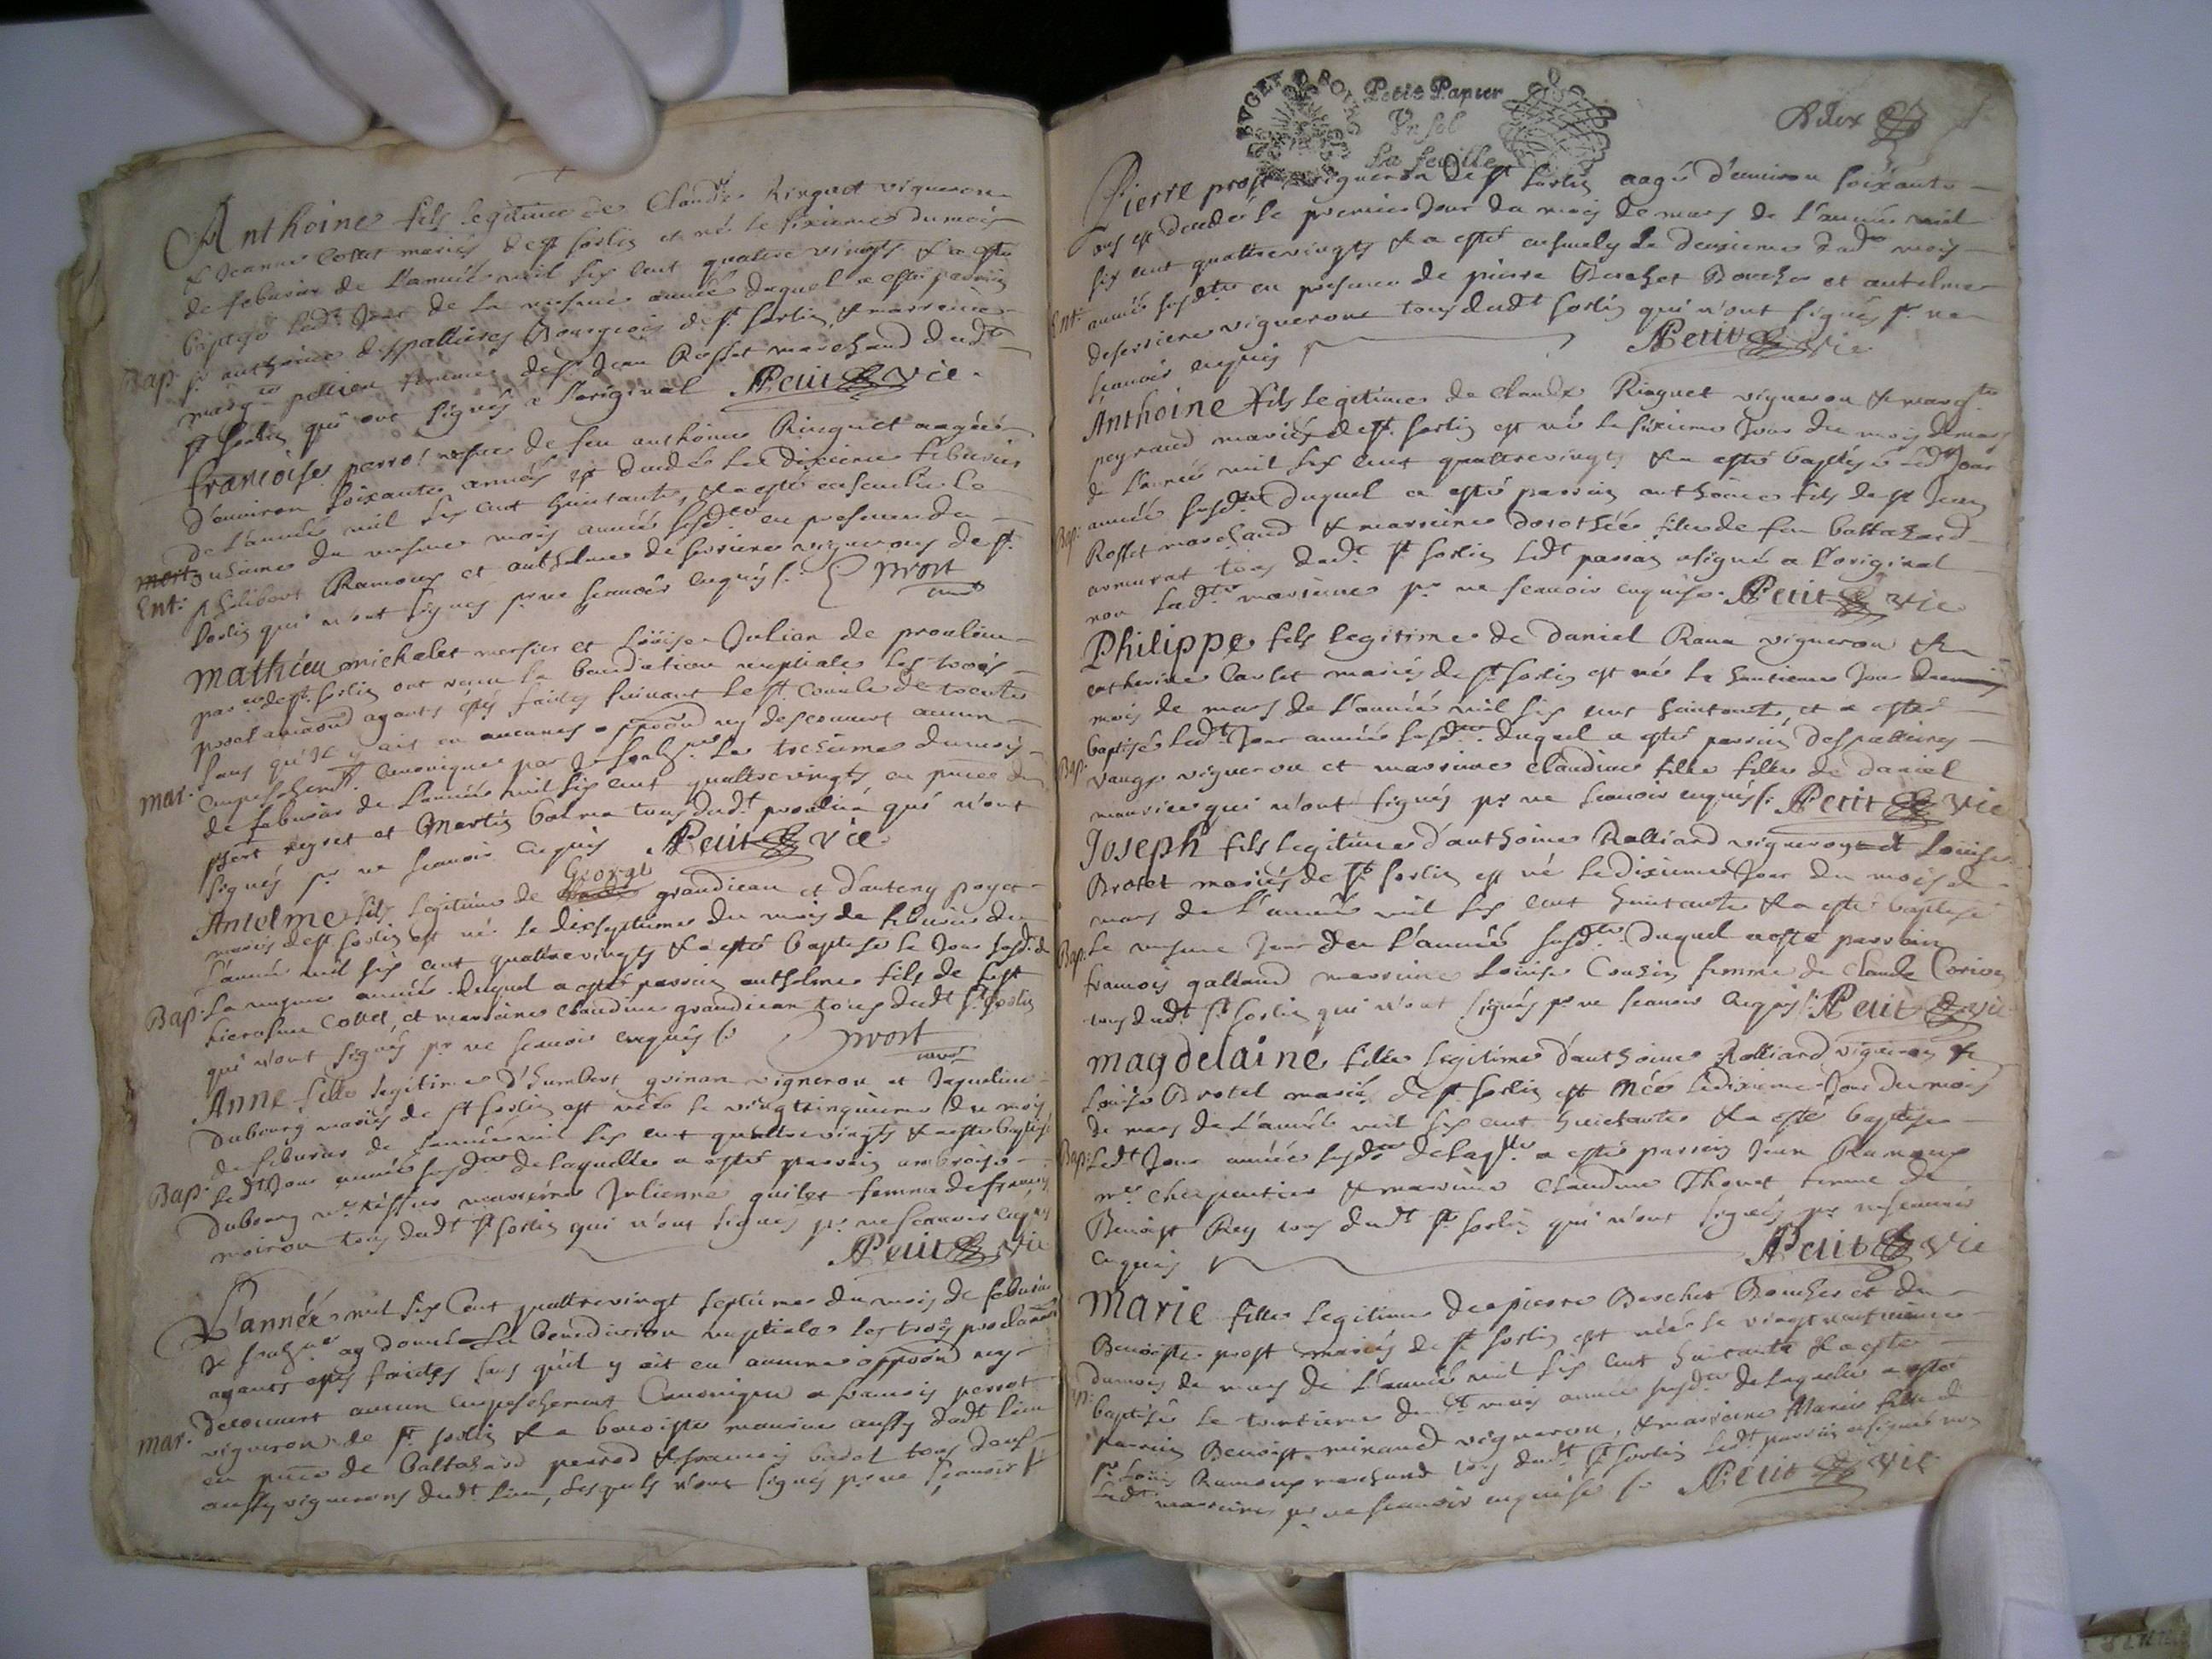 Anthoine fils legitime de Claude Ringuet vigneron
& Jeanne Collet mariés de st sorlin est né le sixieme du mois
de febvrier de l'année mil six cent quatre vingts & a esté
baptisé ledt jour de la mesme année duquel a esté parrin
Bap: sr anthoine despallieres Bourgeois de st sorlin, & marreine
margte femme de sr Jean Rosset marchand dudt
st sorlin qui ont signés a l'original Petit vic.
francoise perrot vefve de feu anthoine Ringuet aagée
d'environ soixante années est decedée le dixieme febvrier
de l'année mil six cent huictante, & a esté ensevelie le
onzieme du mesme mois année susdte en presence de
Ent: philibert Ramoux et anthelme de serriere vignerons de st
sorlin qui n'ont signés pr ne scavoir enquis s.
mathieu michalet mersier et Loüise Julian de proulieu
parre de st sorlin ont receu la benediction nuptiale les trois
proclamaōns ayants estés faites suivant le st concile de trente
sans qu'il y ait eu aucunes oppoōns ny descouvert aucun
mar. empeschemt canonique par je soubsné le treisieme du mois
de febvrier de l'année mil six cent quattrevingts en pnce de
reyret et Martin balma tous dudt proulieu qui n'ont
signés pr ne scavoir enquis Petit vic.
George
Antelme fils legitime de grandjean et d'anteny
mariés de st sorlin est né le dixseptieme du mois de febvrier de
l'année mil six cent quattrevingts & a esté baptisé le jour susd. de
Bap: la mesme année. duquel a esté parrin anthelme fils de
hierosme Collet, et marreine claudine grandjean tous dudt st sorlin
qui n'ont signés pr ne scavoir enquis s.
Anne fille legitime d'humbert guinan vigneron et Jaqueline
dubourg mariés de st sorlin est née le vingtcinquieme du mois
de febvrier de l'année mil six cent quattrevingts & a esté baptisé
Bap: ledt jour année susdte de laquelle a esté parrin ambroise
dubourg me tissier marreine Julienne guilet femme de francois
moiron tous dudt st sorlin qui n'ont signés pr ne scavoir enquis
Petit vic
L'année mil six Cent quattrevingt septieme du mois de febvrier
Je soubsné ay donné la benediction nuptiale les trois proclamaōns
ayants estés faictes sans qu'il y ait eu aucune oppoōn ny
descouvert aucun empeschement Canonique a francois perrot
mar. vigneron de st sorlin & a benoiste maurier aussy dudt lieu
en pnce de Baltahzard perrod & francois tous deux
aussy vignerons dudt lieu, lesquels n'ont signés pr ne scavoir
BVGEY
Petit Papier
Vn sol
La feuille
Pierre prost vigneron de st sorlin aagé d'environ soixante
ans est decedé le premier jour du mois de mars de l'année mil
six cent quattrevingts & a esté ensevely le deuxieme dudt mois
Ent: année susdte en presence de pierre Berchet Boucher et antelme
deserriere vignerons tous dudt sorlin qui n'ont signés pr ne
scavoir enquis Petit vic
Anthoine fils legitime de Claude Ringuet vigneron & margte
peyraud mariés de st sorlin est né le sixieme jour du mois de mars
de l'année mil six cent quattrevingts & a esté baptisé ledt jour
Bap: année susdte duquel a esté parrin anthoine fils de sr Jean
Rosset marchand & marreine dorothée fille de feu baltahzard
tous dudt st sorlin ledt parrain a signé a l'original
non ladte marreine pr ne scavoir enquise. Petit vic
Philippe fils legitime de daniel Rana vigneron &
catherine Carlet mariés de st sorlin est né le huitieme jour du
mois de mars de l'année mil six cent huictante, et a esté
baptisé ledt jour année susdte duquel a esté parrin despallieres
Bap: vigneron et marreine claudine fille fille de daniel
maurier qui n'ont signés pr ne scavoir enquis s. Petit vic
Joseph fils legitime d'anthoine Ralliard vigneron et Louise
Brotet mariés de st sorlin est né le dixieme jour du mois de
mars de l'année mil six cent huictante & a esté baptisé
Bap: le mesme jour de l'année susdte duquel a esté parrain
francois galland marreine Louise Cousin femme de Claude
tous dudt st sorlin qui n'ont signés pr ne scavoir enquis s. Petit vic
magdelaine fille legitime d'anthoine Ralliard vigneron &
Loüise Brotet mariés de st sorlin est née ledixieme jour du mois
de mars de l'année mil six cent huictante & a esté baptisé
Bap: ledt jour année susdte de laqlle a esté parrin Jean Ramoux
me charpentier & marreine Claudine Thevet femme de
Benoist Rey tous dudt st sorlin qui n'ont signés pr ne scavoir
enquis Petit vic
Marie fille legitime de pierre Berchet Boucher et de
Benoiste prost mariés de st sorlin est née le vingtneufvieme
du mois de mars de l'année mil six cent huictante & a esté
baptisé le trentieme dudt mois année susdte de laquelle a esté
parrin Benoist minaud vigneron, & marreine Marie fille de
sr Loüis Ramoux marchand tous dudt st sorlin ledt parrin a signé non
ladt marreine pr ne scavoir enquise s. Petit vic